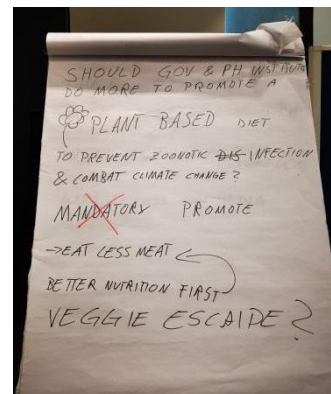 SHOULD GOV & PH INSTITUTE
DO MORE TO PROMOTE A
PLANT BASED DIET
TO PREVENT ZOONOTIC DIS INFECTION
& COMBAT CLIMATE CHANGE?
MANDATORY PROMOTE
→EAT LESS MEAT
BETTER NUTRITION FIRST
VEGGIE ESCAIPE?